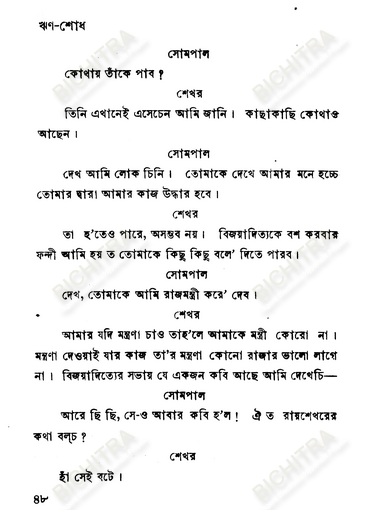 ঋণ-শোধ
সোমপাল
কোথায় তাঁকে পাব ?
শেখর
তিনি এখানেই এসেচেন আমি জানি। কাছাকাছি কোথাও
আছেন।
সোমপাল
দেখ আমি লোক চিনি। তোমাকে দেখে আমার মনে হচ্চে
তোমার দ্বারা আমার কাজ উদ্ধার হবে।
শেখর
তা হ'তেও পারে, অসম্ভব নয়। বিজয়াদিত্যকে বশ করবার
ফন্দী আমি হয় ত তোমাকে কিছু কিছু বলে' দিতে পারব।
সোমপাল
দেখ, তোমাকে আমি রাজমন্ত্রী করে' দেব।
শেখর
আমার যদি মন্ত্রণা চাও তাহ'লে আমাকে মন্ত্রী কোরো না।
মন্ত্রণা দেওয়াই যার কাজ তা'র মন্ত্রণা কোনো রাজার ভালো লাগে
না। বিজয়াদিত্যের সভায় যে একজন কবি আছে আমি দেখেচি—
সোমপাল
আরে ছি ছি, সে-ও আবার কবি হ'ল! ঐ ত রায়শেখরের
কথা বল্‌চ ?
শেখর
হাঁ সেই বটে।
৪৮
BICHITRA